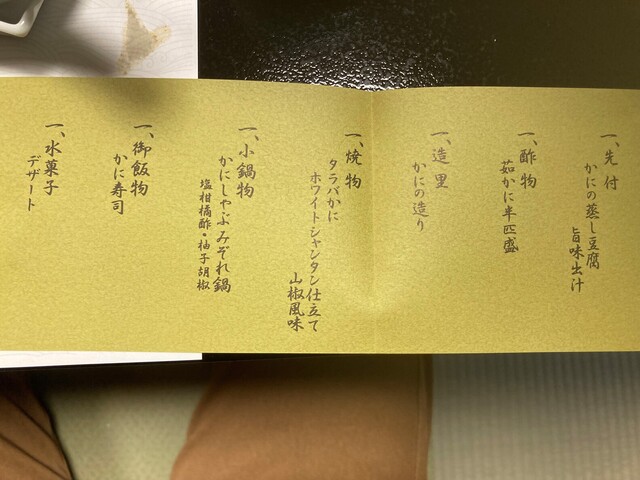 一、先付
かにの蒸し豆腐
旨味出汁
一、酢物
茹かに半匹盛
一、造里
かにの造り
一、焼物
タラバかに
ホワイトシャンタン仕立て
山椒風味
一、小鍋物
かにしゃぶみぞれ鍋
塩柑橘酢・柚子胡椒
一、御飯物
かに寿司
一、水菓子
デザート